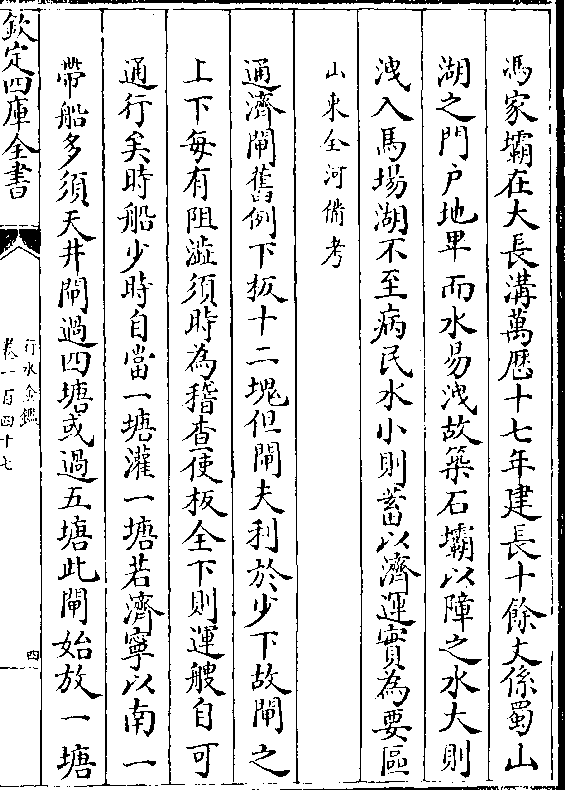 馮家壩在大長溝萬厯十七年建長十餘丈係蜀山
湖之門户地卑而水易洩故築石壩以障之水大則
洩入馬塲湖不至病民水小則蓄以濟運實為要區
山東全河備考
通濟閘舊例下板十二塊但閘夫利於少下故閘之
上下每有阻澁須時為稽查使板全下則運艘自可
通行矣時船少時自當一塘灌一塘若濟寧以南一
帶船多須天井閘過四塘或過五塘此閘始放一塘
欽定四庫全書
行水金鑑
卷一百四十七
四